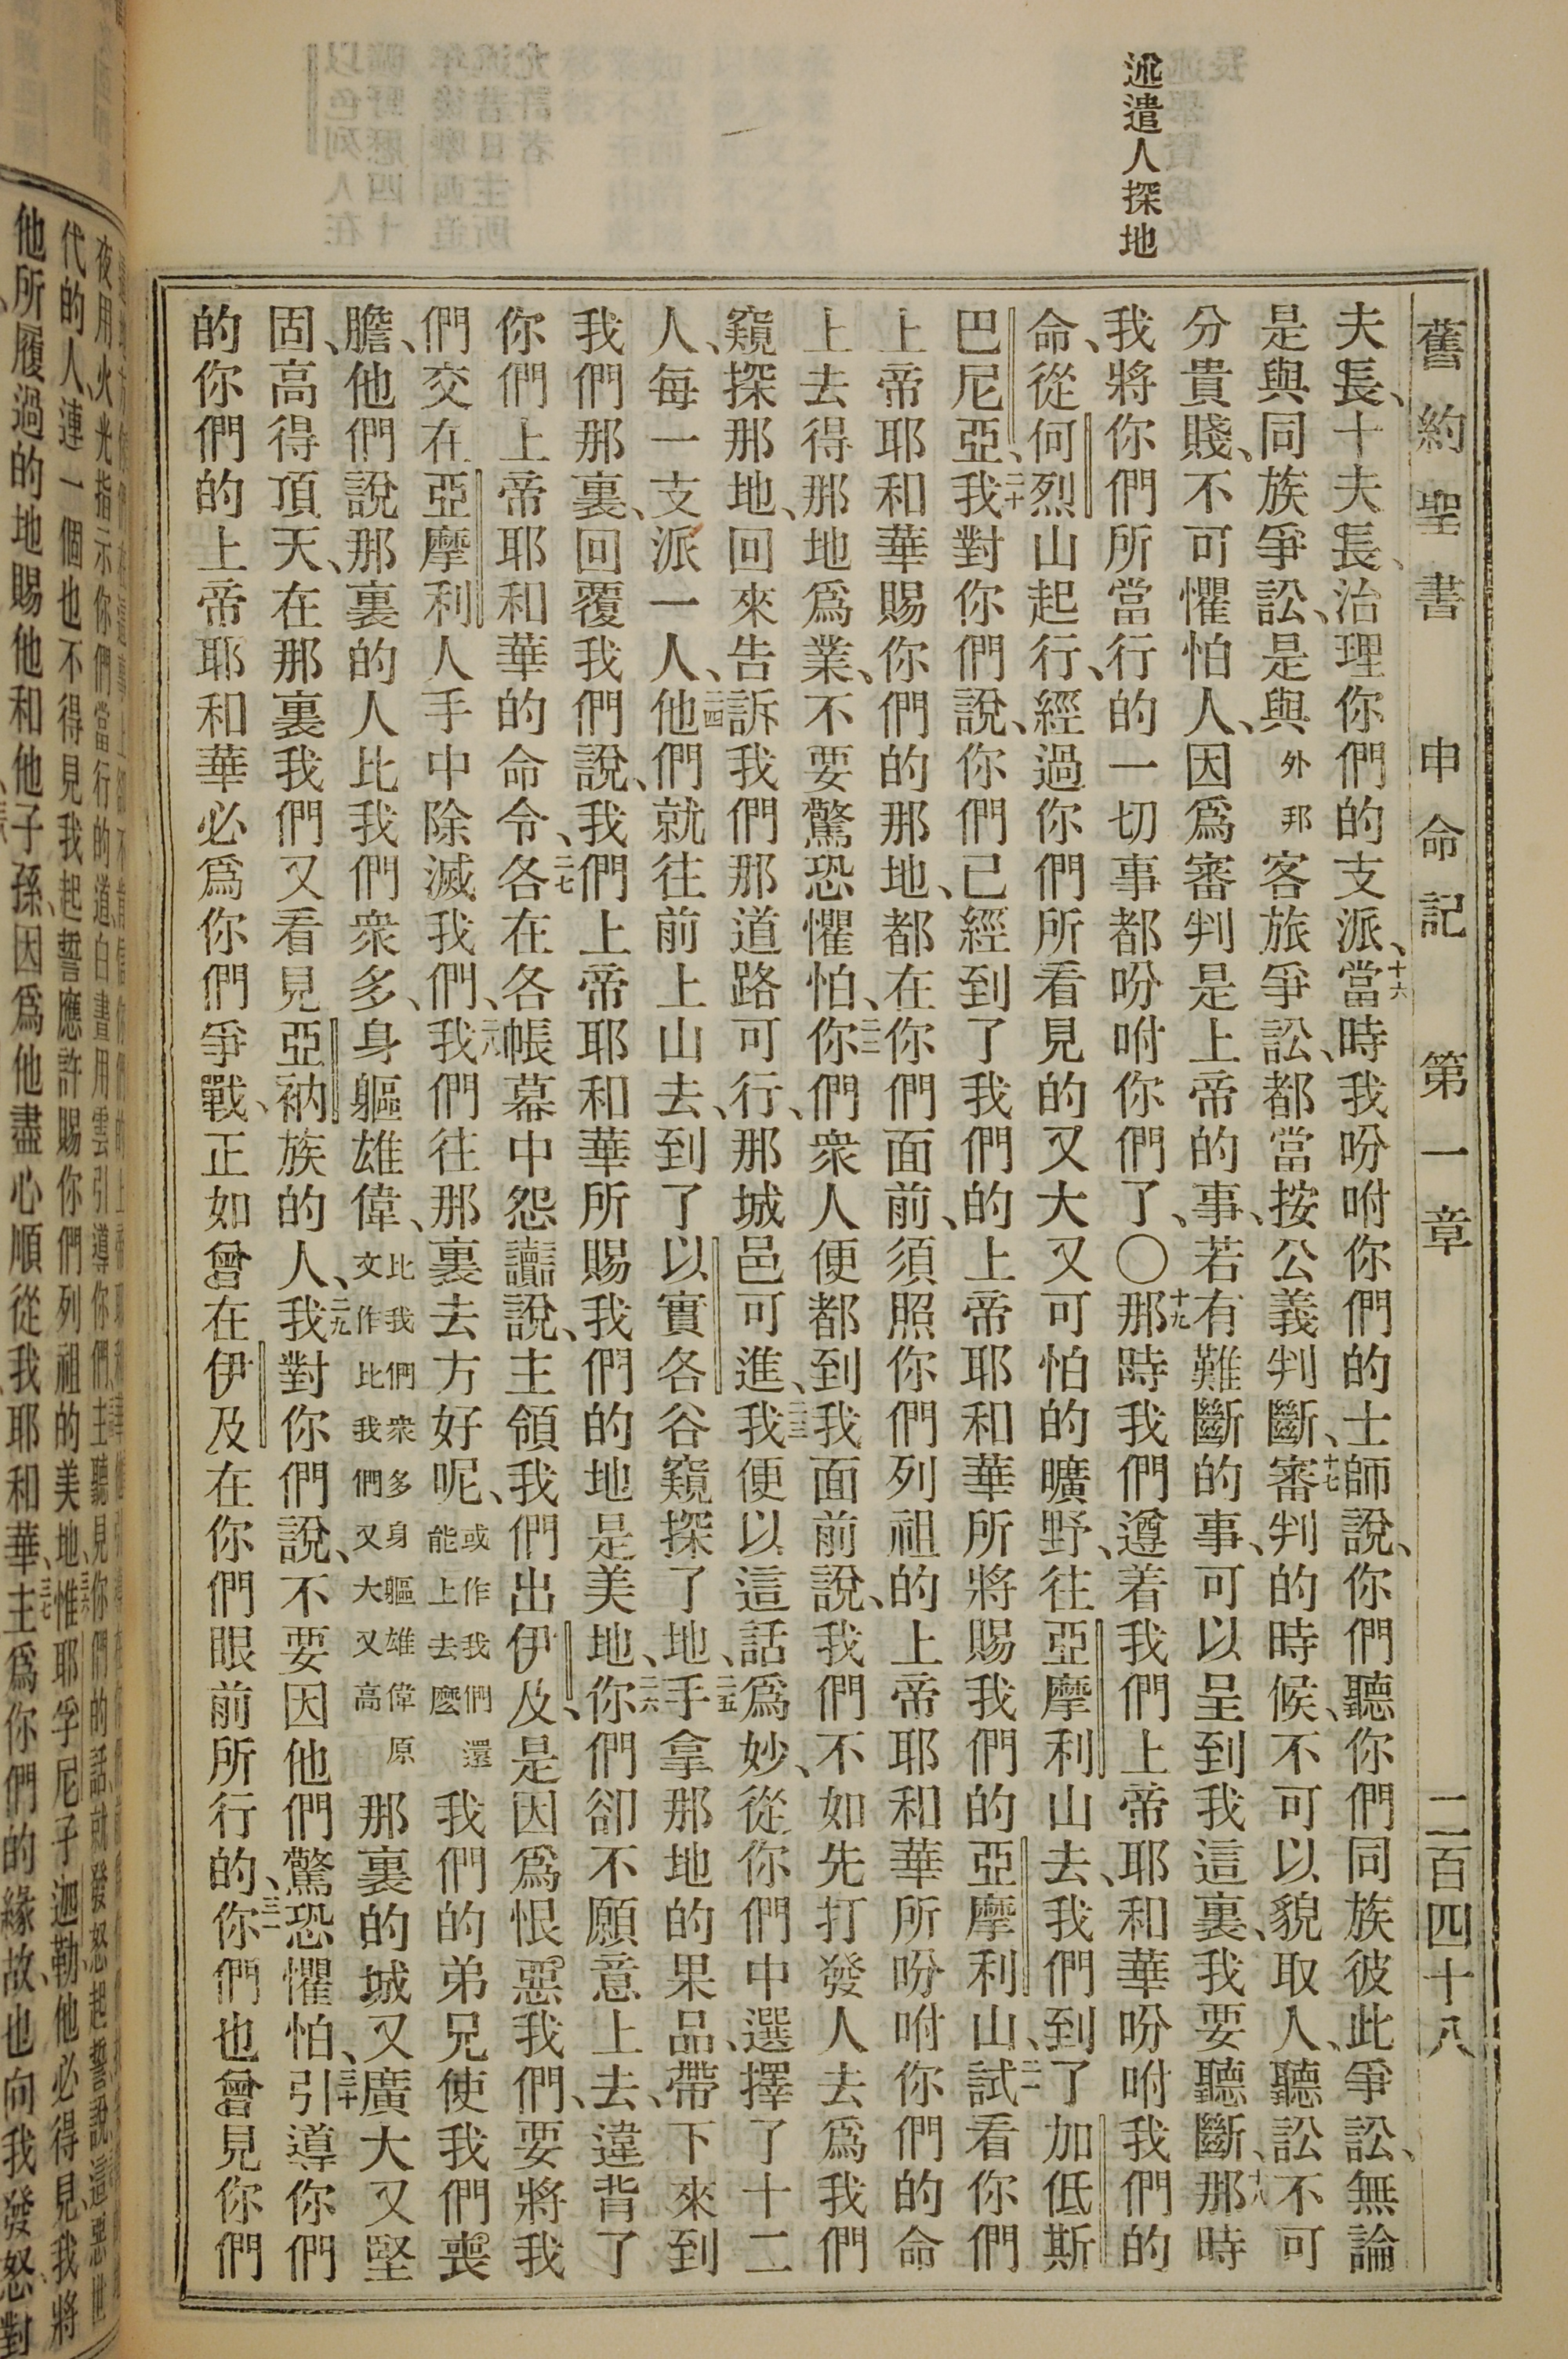 述遣人探地
舊約聖書 申命記 第一章 二百四十八
夫長、十夫長、治理你們的支派、十六當時我吩咐你們的士師說、你們聽你們同族彼此爭訟、無論
是與同族爭訟、是與外邦客旅爭訟、都當按公義判斷、十七審判的時候、不可以貌取人、聽訟不可
分貴賤、不可懼怕人、因爲審判是上帝的事、若有難斷的事、可以呈到我這裏、我要聽斷、十八那時
我將你們所當行的一切事都吩咐你們了、〇十九那時我們遵着我們上帝耶和華吩咐我們的
命、從何烈山起行、經過你們所看見的又大又可怕的曠野、往亞摩利山去、我們到了加低斯
巴尼亞、二十我對你們說、你們已經到了我們的上帝耶和華所將賜我們的亞摩利山、二一試看你們
上帝耶和華賜你們的那地、都在你們面前、須照你們列祖的上帝耶和華所吩咐你們的命
上去得那地爲業、不要驚恐懼怕、二二你們衆人便都到我面前說、我們不如先打發人去爲我們
窺探那地、回來告訴我們那道路可行、那城邑可進、二三我便以這話爲妙、從你們中選擇了十二
人、每一支派一人、二四他們就往前上山去、到了以實各谷窺探了地、二五手拿那地的果品、帶下來到
我們那裏、回覆我們說、我們上帝耶和華所賜我們的地是美地、二六你們卻不願意上去、違背了
你們上帝耶和華的命令、二七各在各帳幕中怨讟說、主領我們出伊及、是因爲恨惡我們、要將我
們交在亞摩利人手中除滅我們、二八我們往那裏去方好呢、或作我們還能上去麽我們的弟兄使我們喪
膽、他們說那裏的人比我們衆多、身軀雄偉、比我們衆多身軀雄偉原文作比我們又大又高那裏的城又廣大又堅
固、高得頂天、在那裏我們又看見亞衲族的人、二九我對你們說、不要因他們驚恐懼怕、三十引導你們
的你們的上帝耶和華必爲你們爭戰、正如曾在伊及在你們眼前所行的、三一你們也曾見你們
夜用火光指示你們當行的道、白晝用雲引導你們、主聽見你們的話、就發怒起誓說、這惡世
代的人、連一個也不得見我起誓應許賜你們列祖的美地、惟耶孚尼子迦勒、他必得見、我將
他所履過的地賜他和他子孫、因爲他盡心順從我耶和華、三七主爲你們的緣故、也向我發怒、對